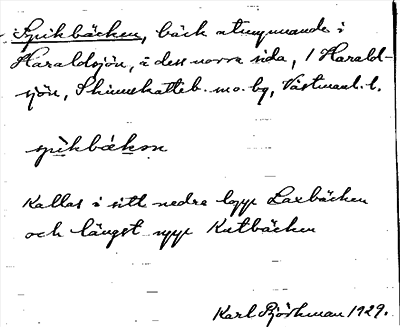 Spikbäcken, bäck utmynnande i
Haraldsjön, å dess norra sida, / Harald-
sjön, Skinnskatteb. mo. bg, Västmanl. l.
spikbäken
Kallas i sitt nedre lopp Laxbäcken
och längst upp Kutbäcken
Karl Björkman 1929.